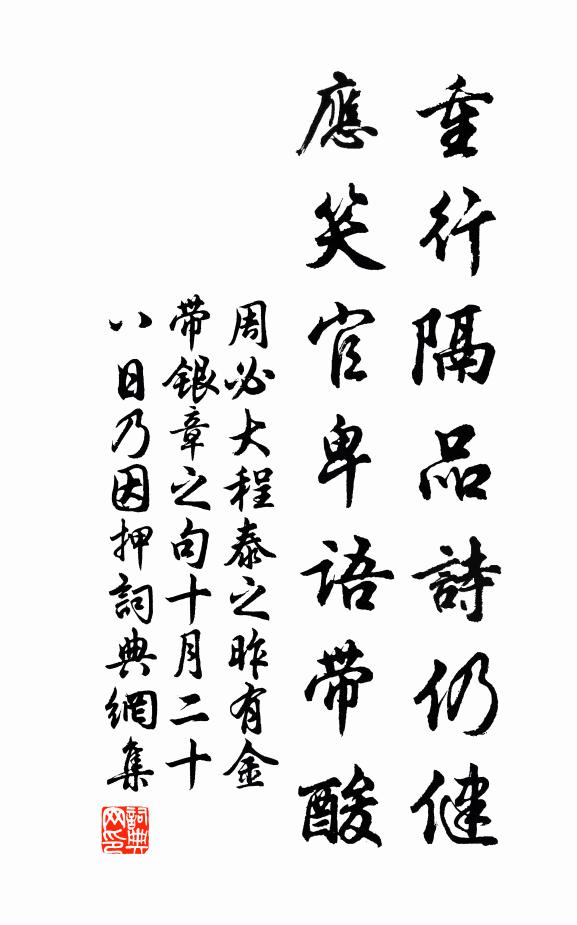 重行隔品詩仍健
應笑官卑語帶酸
周必大程泰之昨有金
帶銀章之句十月二十
八日乃因押詞典網集
詞典
网印